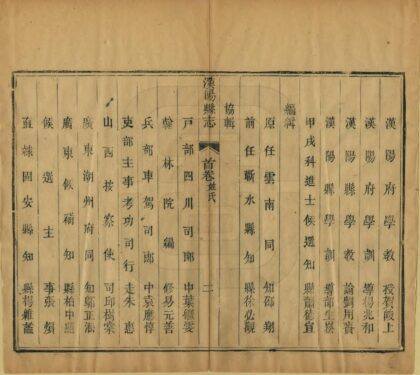 漢陽府學教授賀篯上
漢陽府學訓導得兆和
漢陽縣學教諭劉用賓
漢陽縣學訓導部生
編輯
甲戌科進士候選知縣韻德宣
原任雲南同知邵翔
前任蘄水縣知縣徐必觀
協輯
漢陽縣志
首卷
姓氏
二
戶部四川司郎中葉繼雯
翰林院編修易元善
兵部車駕司郎中袁應
吏部主事考功司行走朱惠
山西按察使司邱樹棠
廣東潮州府同知鄒正
廣東候補知縣柏中
候選主事張
直隸固安縣知縣楊